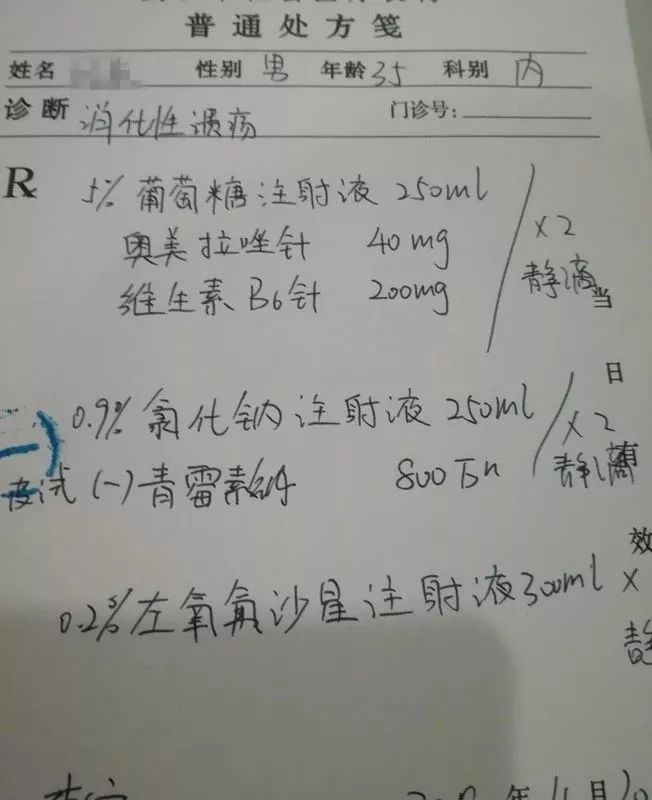 普通处方笺
姓名 性别 男 年龄 35 科别 内
诊断 消化性溃疡 门诊号:
R 5% 葡萄糖注射液 250ml
奥美拉唑针 40mg ×2
维生素B6针 200mg 静滴
当
日
0.9% 氯化钠注射液 250ml ×2
皮试(-)青霉素钠 800万u 静滴
有
效
0.2% 左氧氟沙星注射液 300ml ×
静
年11月20